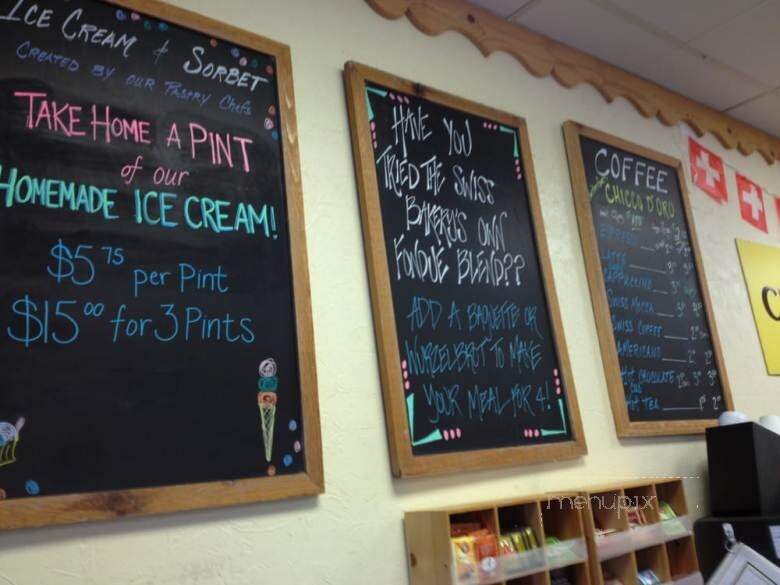 ICE CREAM + SORBET
CREATED BY OUR PASTRY CHEFS
TAKE HOME A PINT
of our
HOMEMADE ICE CREAM!
$5.75 per Pint
$15.00 for 3 Pints
HAVE YOU
TRIED THE SWISS
BAKERY'S OWN
FONDUE BLEND??
ADD A BAGUETTE OR
WURZELBROT TO MAKE
YOUR MEAL FOR 4!
COFFEE
CHICCO D'ORO
ESPRESSO
LATTE
CAPPUCCINO
SWISS MOCHA
SWISS COFFEE
AMERICANO
HOT CHOCOLATE
HOT TEA
menupix